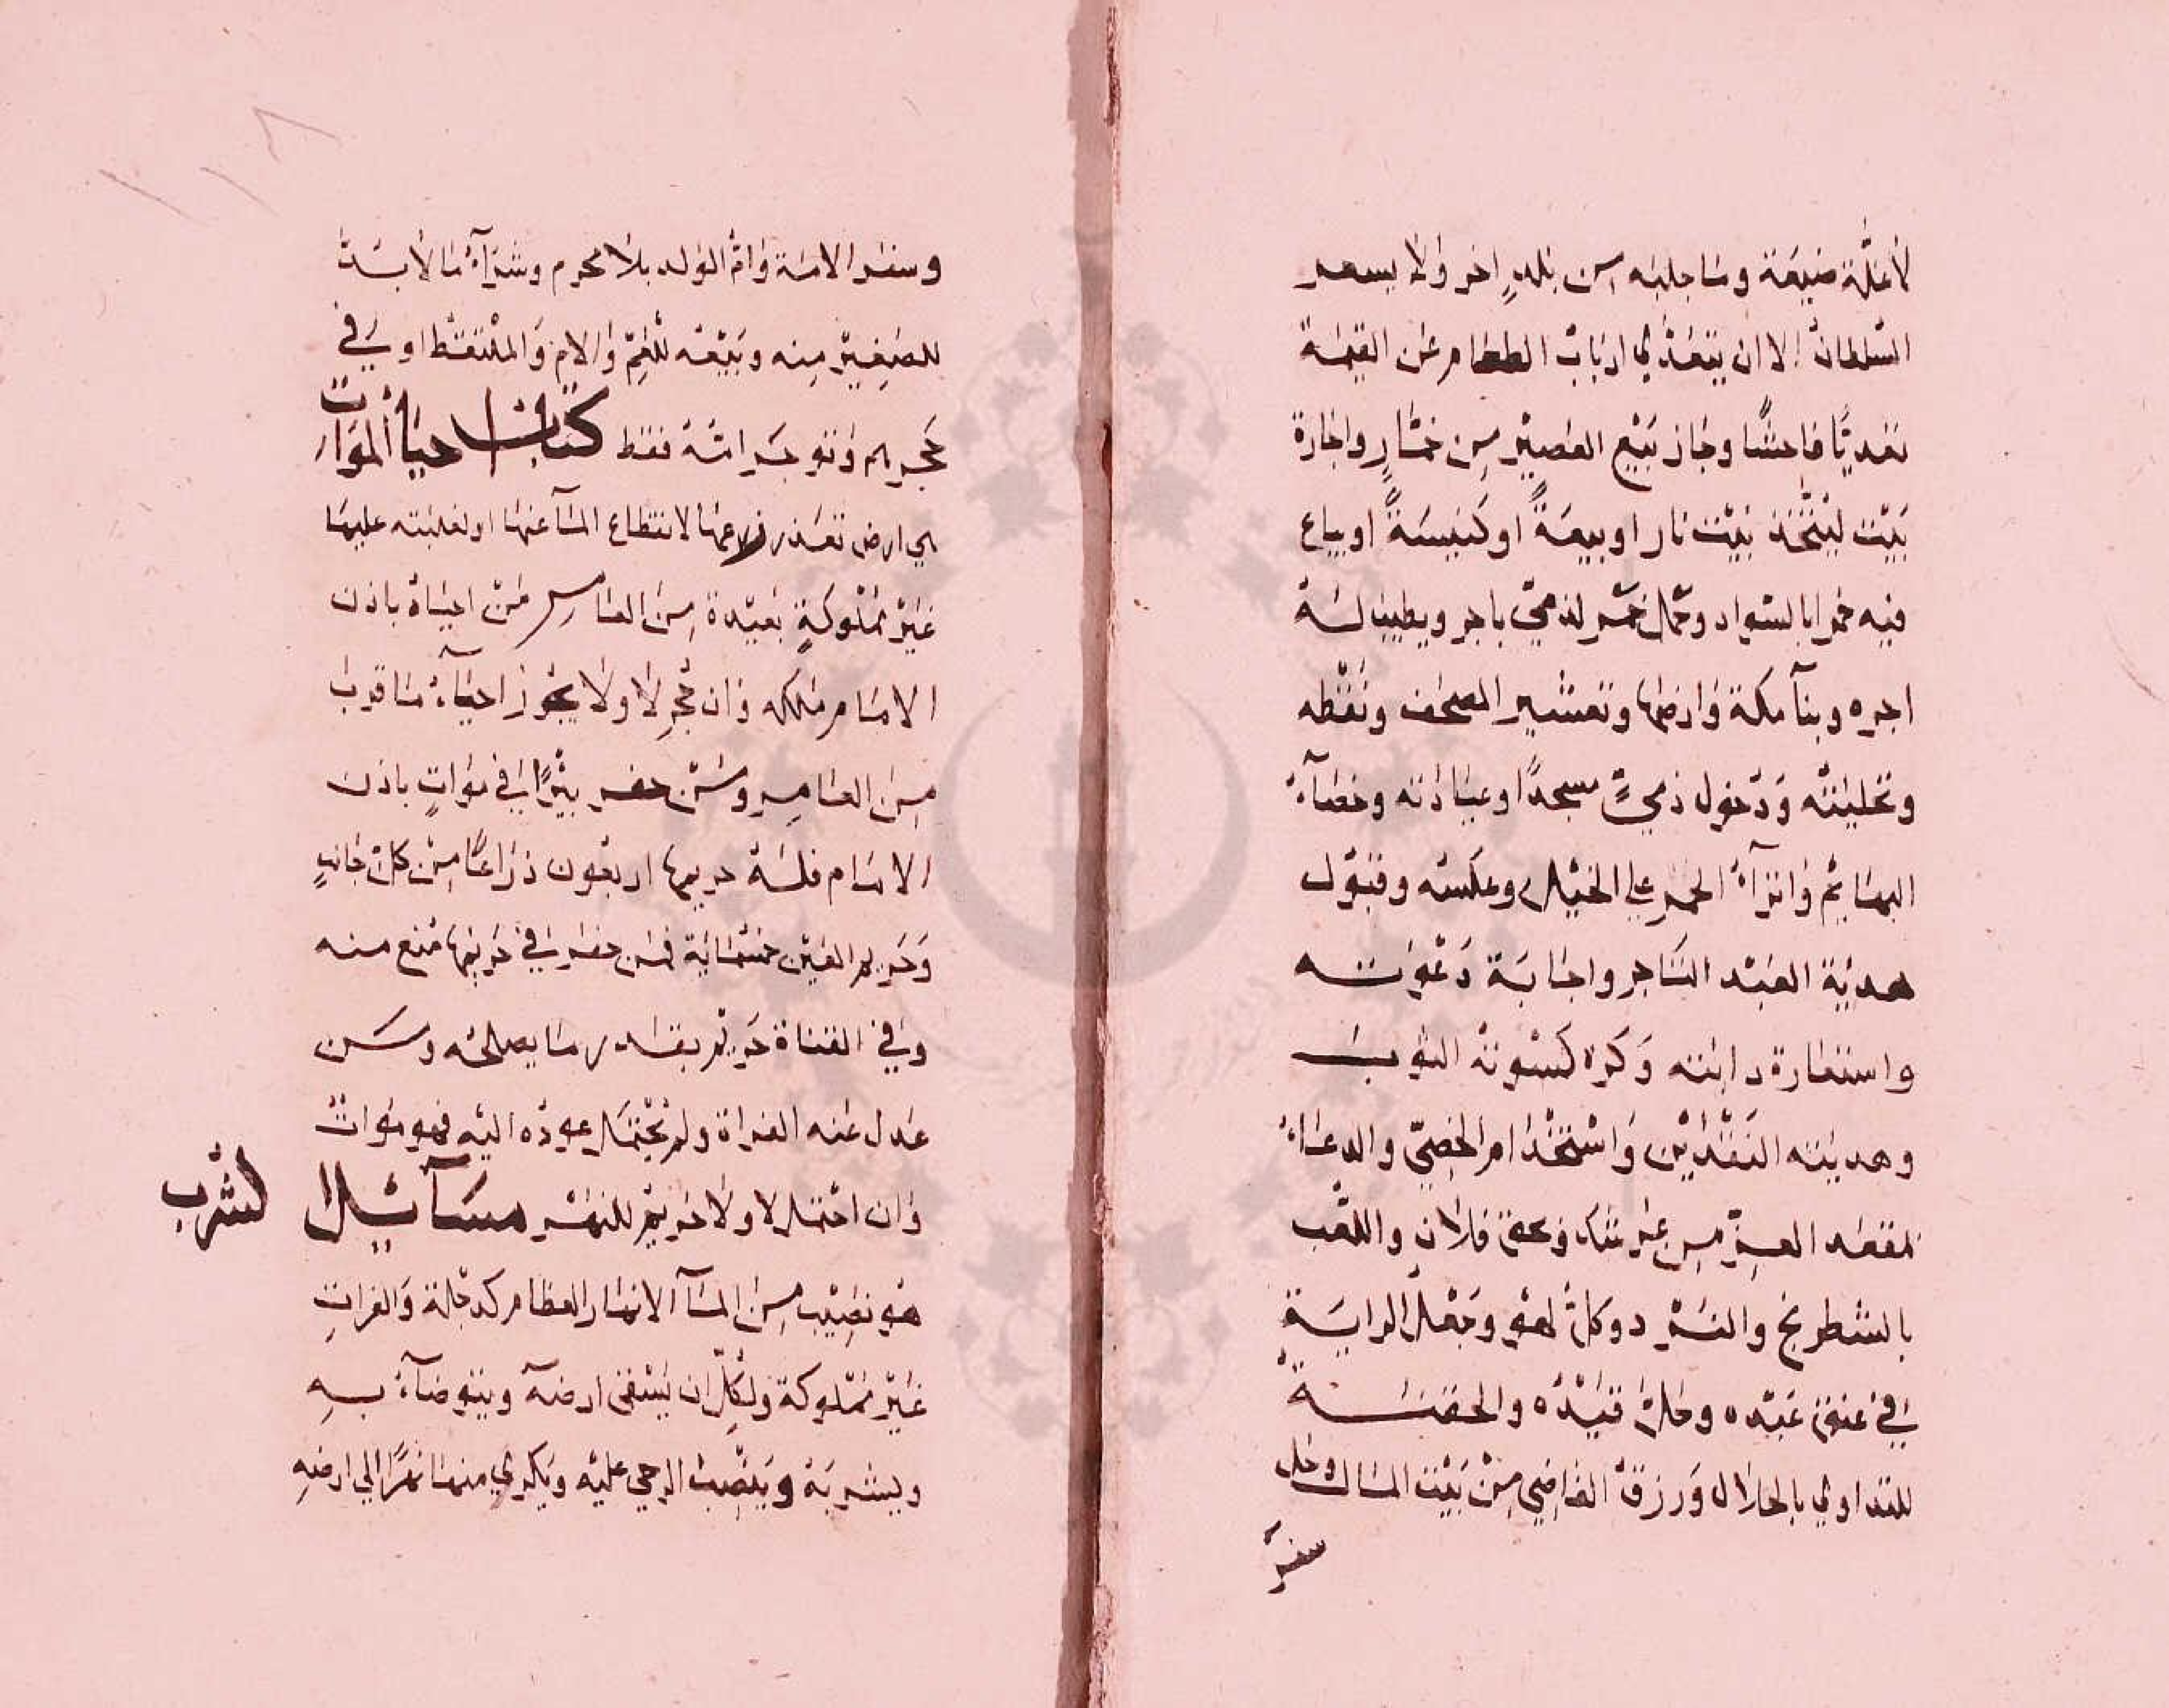 لا غلّة ضيعة وما جلبه من بلدٍ اخر ولا يسعر
السّلطان الا ان يتعدّي ارباب الطعام عن القيمة
تعديًا فاحشًا وجاز بيع العصير من خمّارٍ واجارة
بيت ليتّخذ بيت نار او بيعةً او كنيسةً او يباع
فيه خمرا بالسّواد وحمل خمر لذميّ باجر ويطيب له
اجره وبنآ مكة وارضها وتعشير المصحف ونقطه
وتحليته ودخول ذميّ مسجدًا وعيادته وخصآء
البهايم وانزآء الحمير علي الخيل وعكسه وقبول
هدية العبد التاجر واجابة دعوته
واستعارة دابته وكره كسوته الثوب
وهديته النقدين واستخدام الخصيّ والدعاء
بمقعد العزّ من عرشك وبحق فلان واللّعب
بالشطرنج والنرد وكلّ لهو وجعل الراية
في عنق عبده وحلّ قيده والحقنة
للتداوي بالحلال ورزق القاضي من بيت المال وحل
سفر
وسفر الامة وامّ الولد بلا محرم وشرآء ما لا بدّ
للصغير منه وبيعه للعمّ والام والملتقط او في
حجرهم وتوجر امّه فقط كتاب احيا الموات
هي ارض تعذر زرعها لانقطاع المآ عنها او لغلبته عليها
غير مملوكةٍ بعيدة من العامر من احياه باذن
الامام ملكه وان حجر لا ولا يجوز احيآء ما قرب
من العامر ومن حفر بئرًا في مواتٍ باذن
الامام فله حريمها اربعون ذراعًا من كلّ جانبٍ
وحريم العين خمسماية فمن حفر في حريمها منع منه
وفي القناة حريم بقدر ما يصلحه وما
عدل عنه الفراة ولم يحتمل عوده اليه فهو موات
وان احتمل لا ولا حريم للنهر مسآئل الشّرب
هو نصيب من المآ الانهار العظام كدجلة والفراتِ
غير مملوكة ولكلّ ان يسقي ارضه ويتوضآء به
ويشربه وينصب الرحي عليه ويكري منها نهرًا الي ارضه